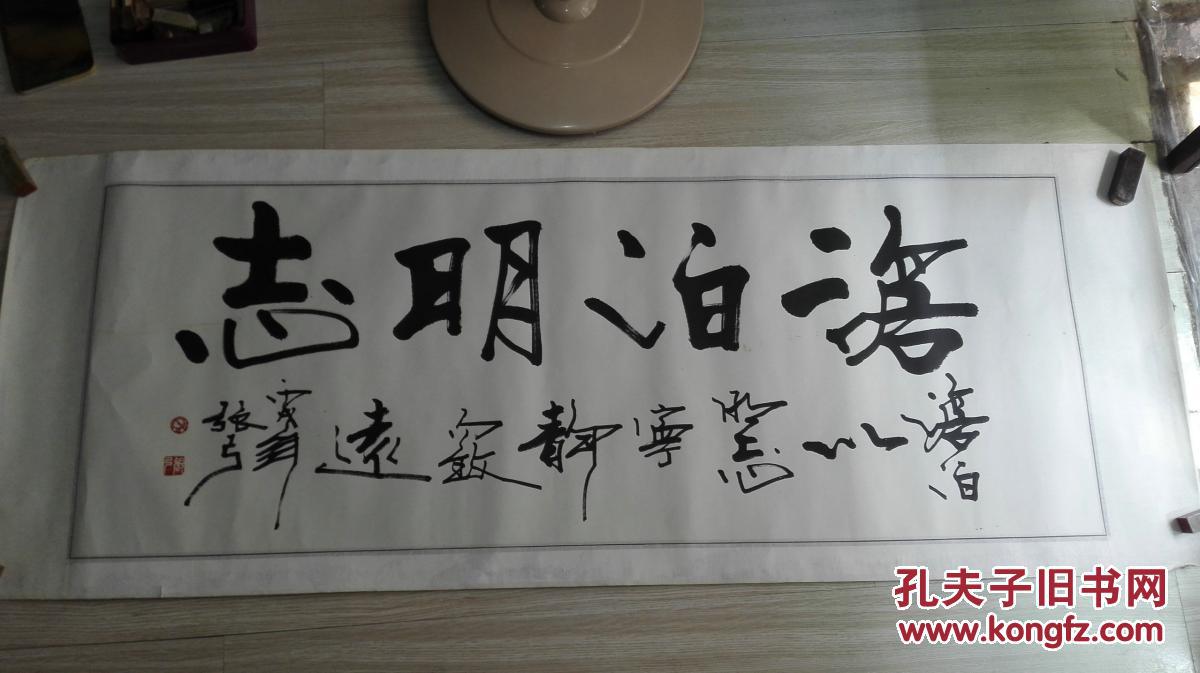 澹泊明志
澹泊以明志寧靜致遠
張弓
孔夫子旧书网
www.kongfz.com